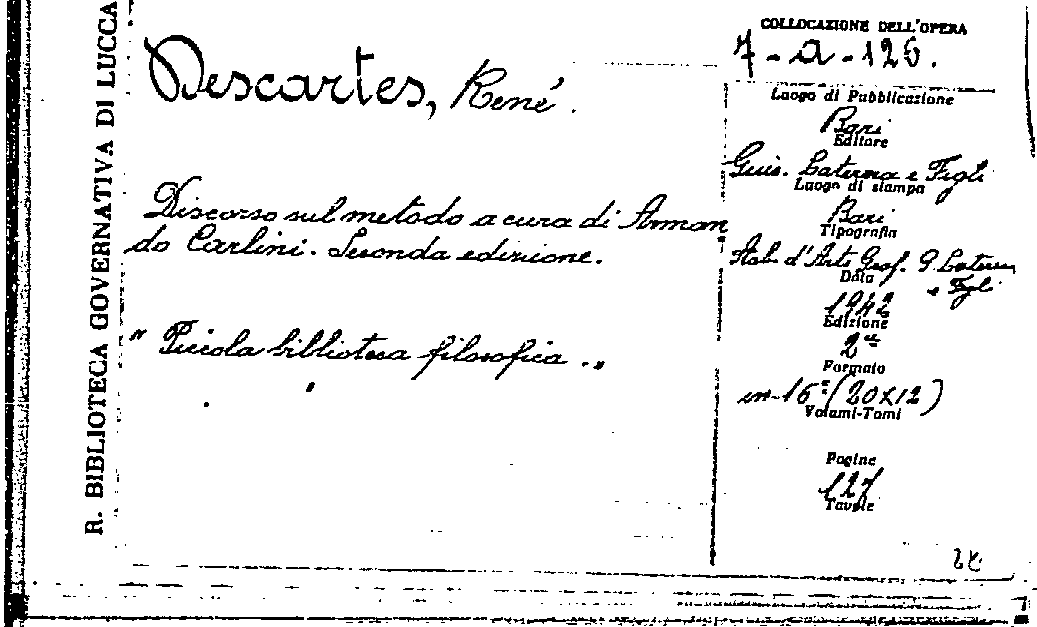 R. BIBLIOTECA GOVERNATIVA DI LUCCA
Descartes, René.
Discorso sul metodo a cura di Arman
do Carlini. Seconda edizione.
" Piccola biblioteca filosofica. "
COLLOCAZIONE DELL'OPERA
7-a-126.
Luogo di Pubblicazione
Bari
Editore
Gius. Laterza e Figli
Luogo di stampa
Bari
Tipografia
Stab. d'Arti Graf. G. Laterza
e Figli
Data
1942
Edizione
2ª
Formato
in-16° (20x12)
Volumi-Tomi
Pagine
127
Tavole